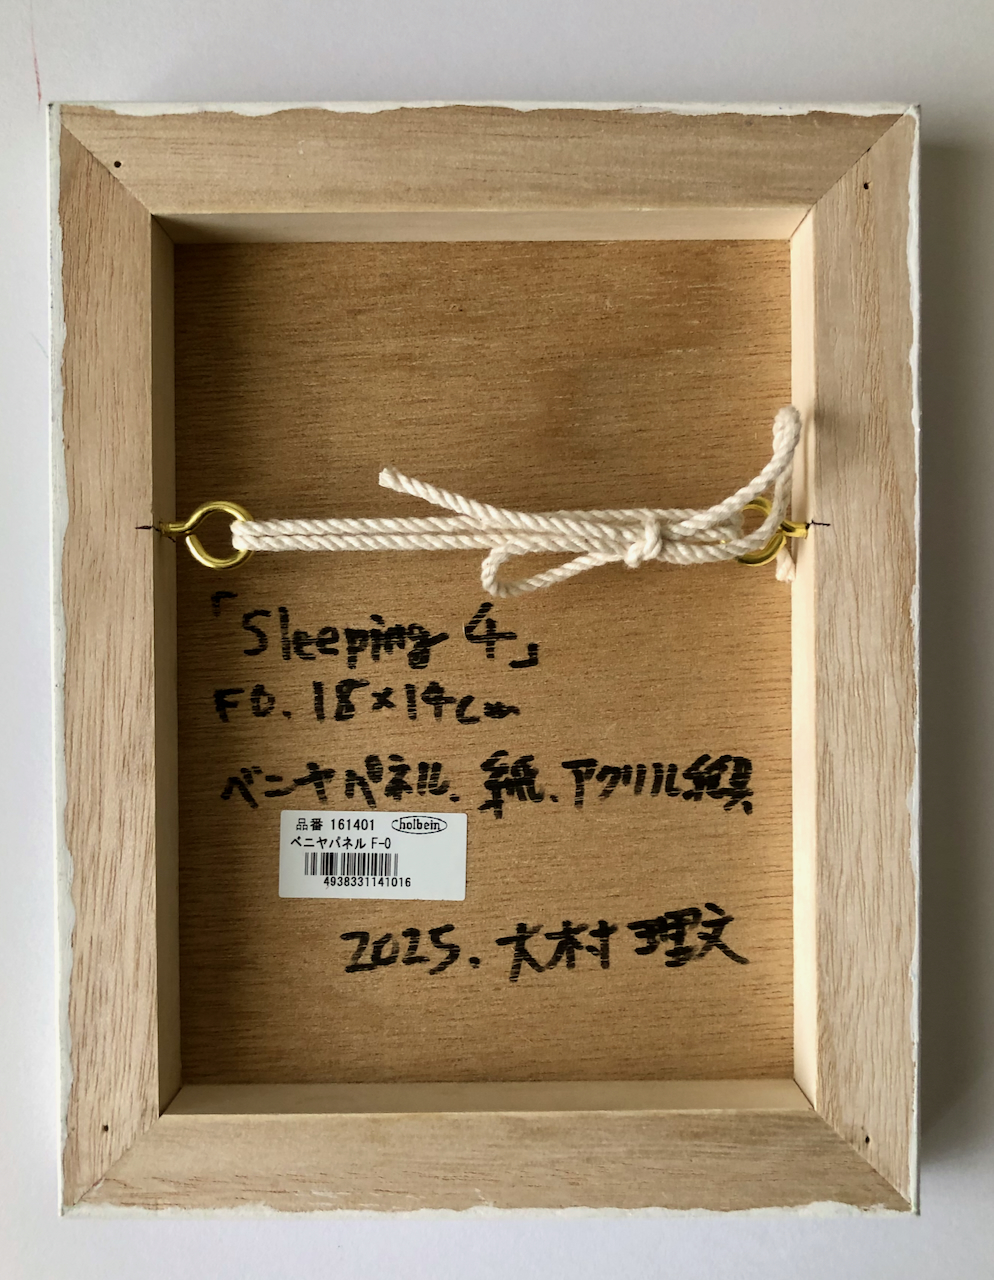 「Sleeping 4」
F0. 18×14cm
ベニヤパネル、紙、アクリル絵具
品番 161401 holbein
ベニヤパネル F-0
4938331141016
2025. 大村理文